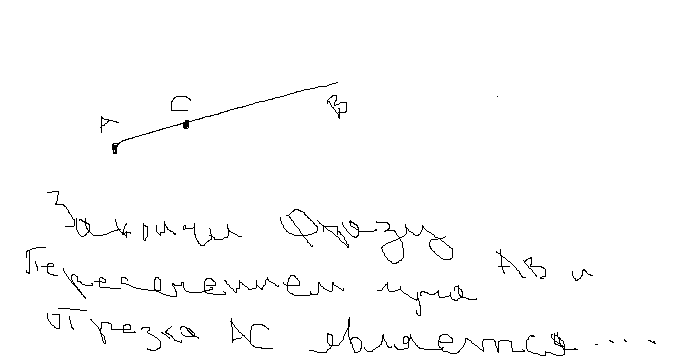 C
A
B
Закончи фразу
Пересечением луча AB и
отрезка AC является....